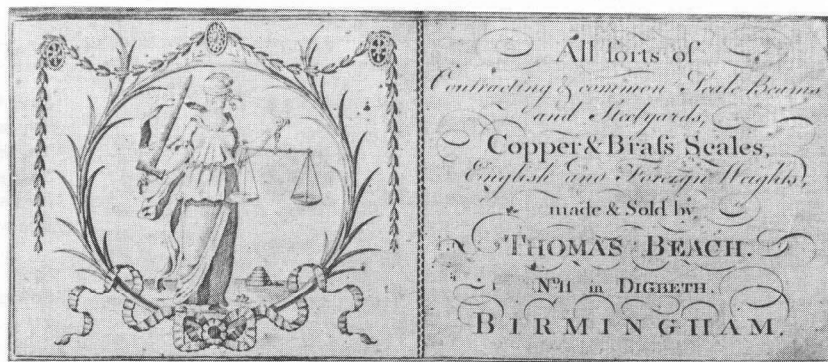 All sorts of
Contracting & common Scale Beams
and Steelyards,
Copper & Braſs Scales,
English and Foreign Weights,
made & Sold by
THOMAS BEACH.
No. 11 in DIGBETH.
BIRMINGHAM.